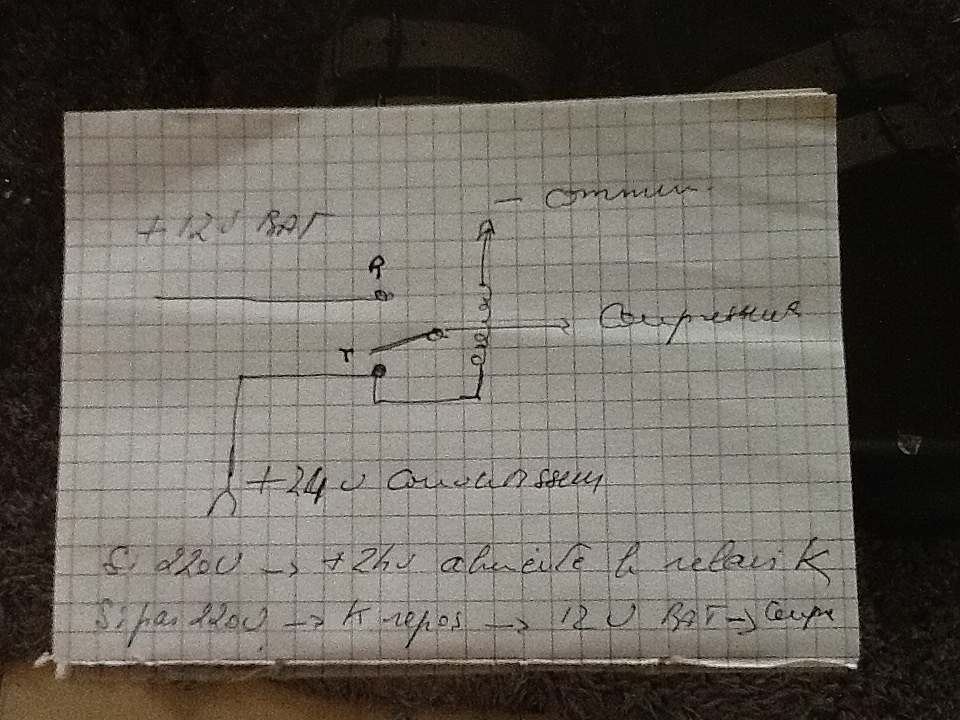 — Commun
+12V BAT
R
Compresseur
T
+24V Convertisseur
Si 220V → +24V alimente le relais K
Si pas 220V → K repos → 12V BAT → Compr